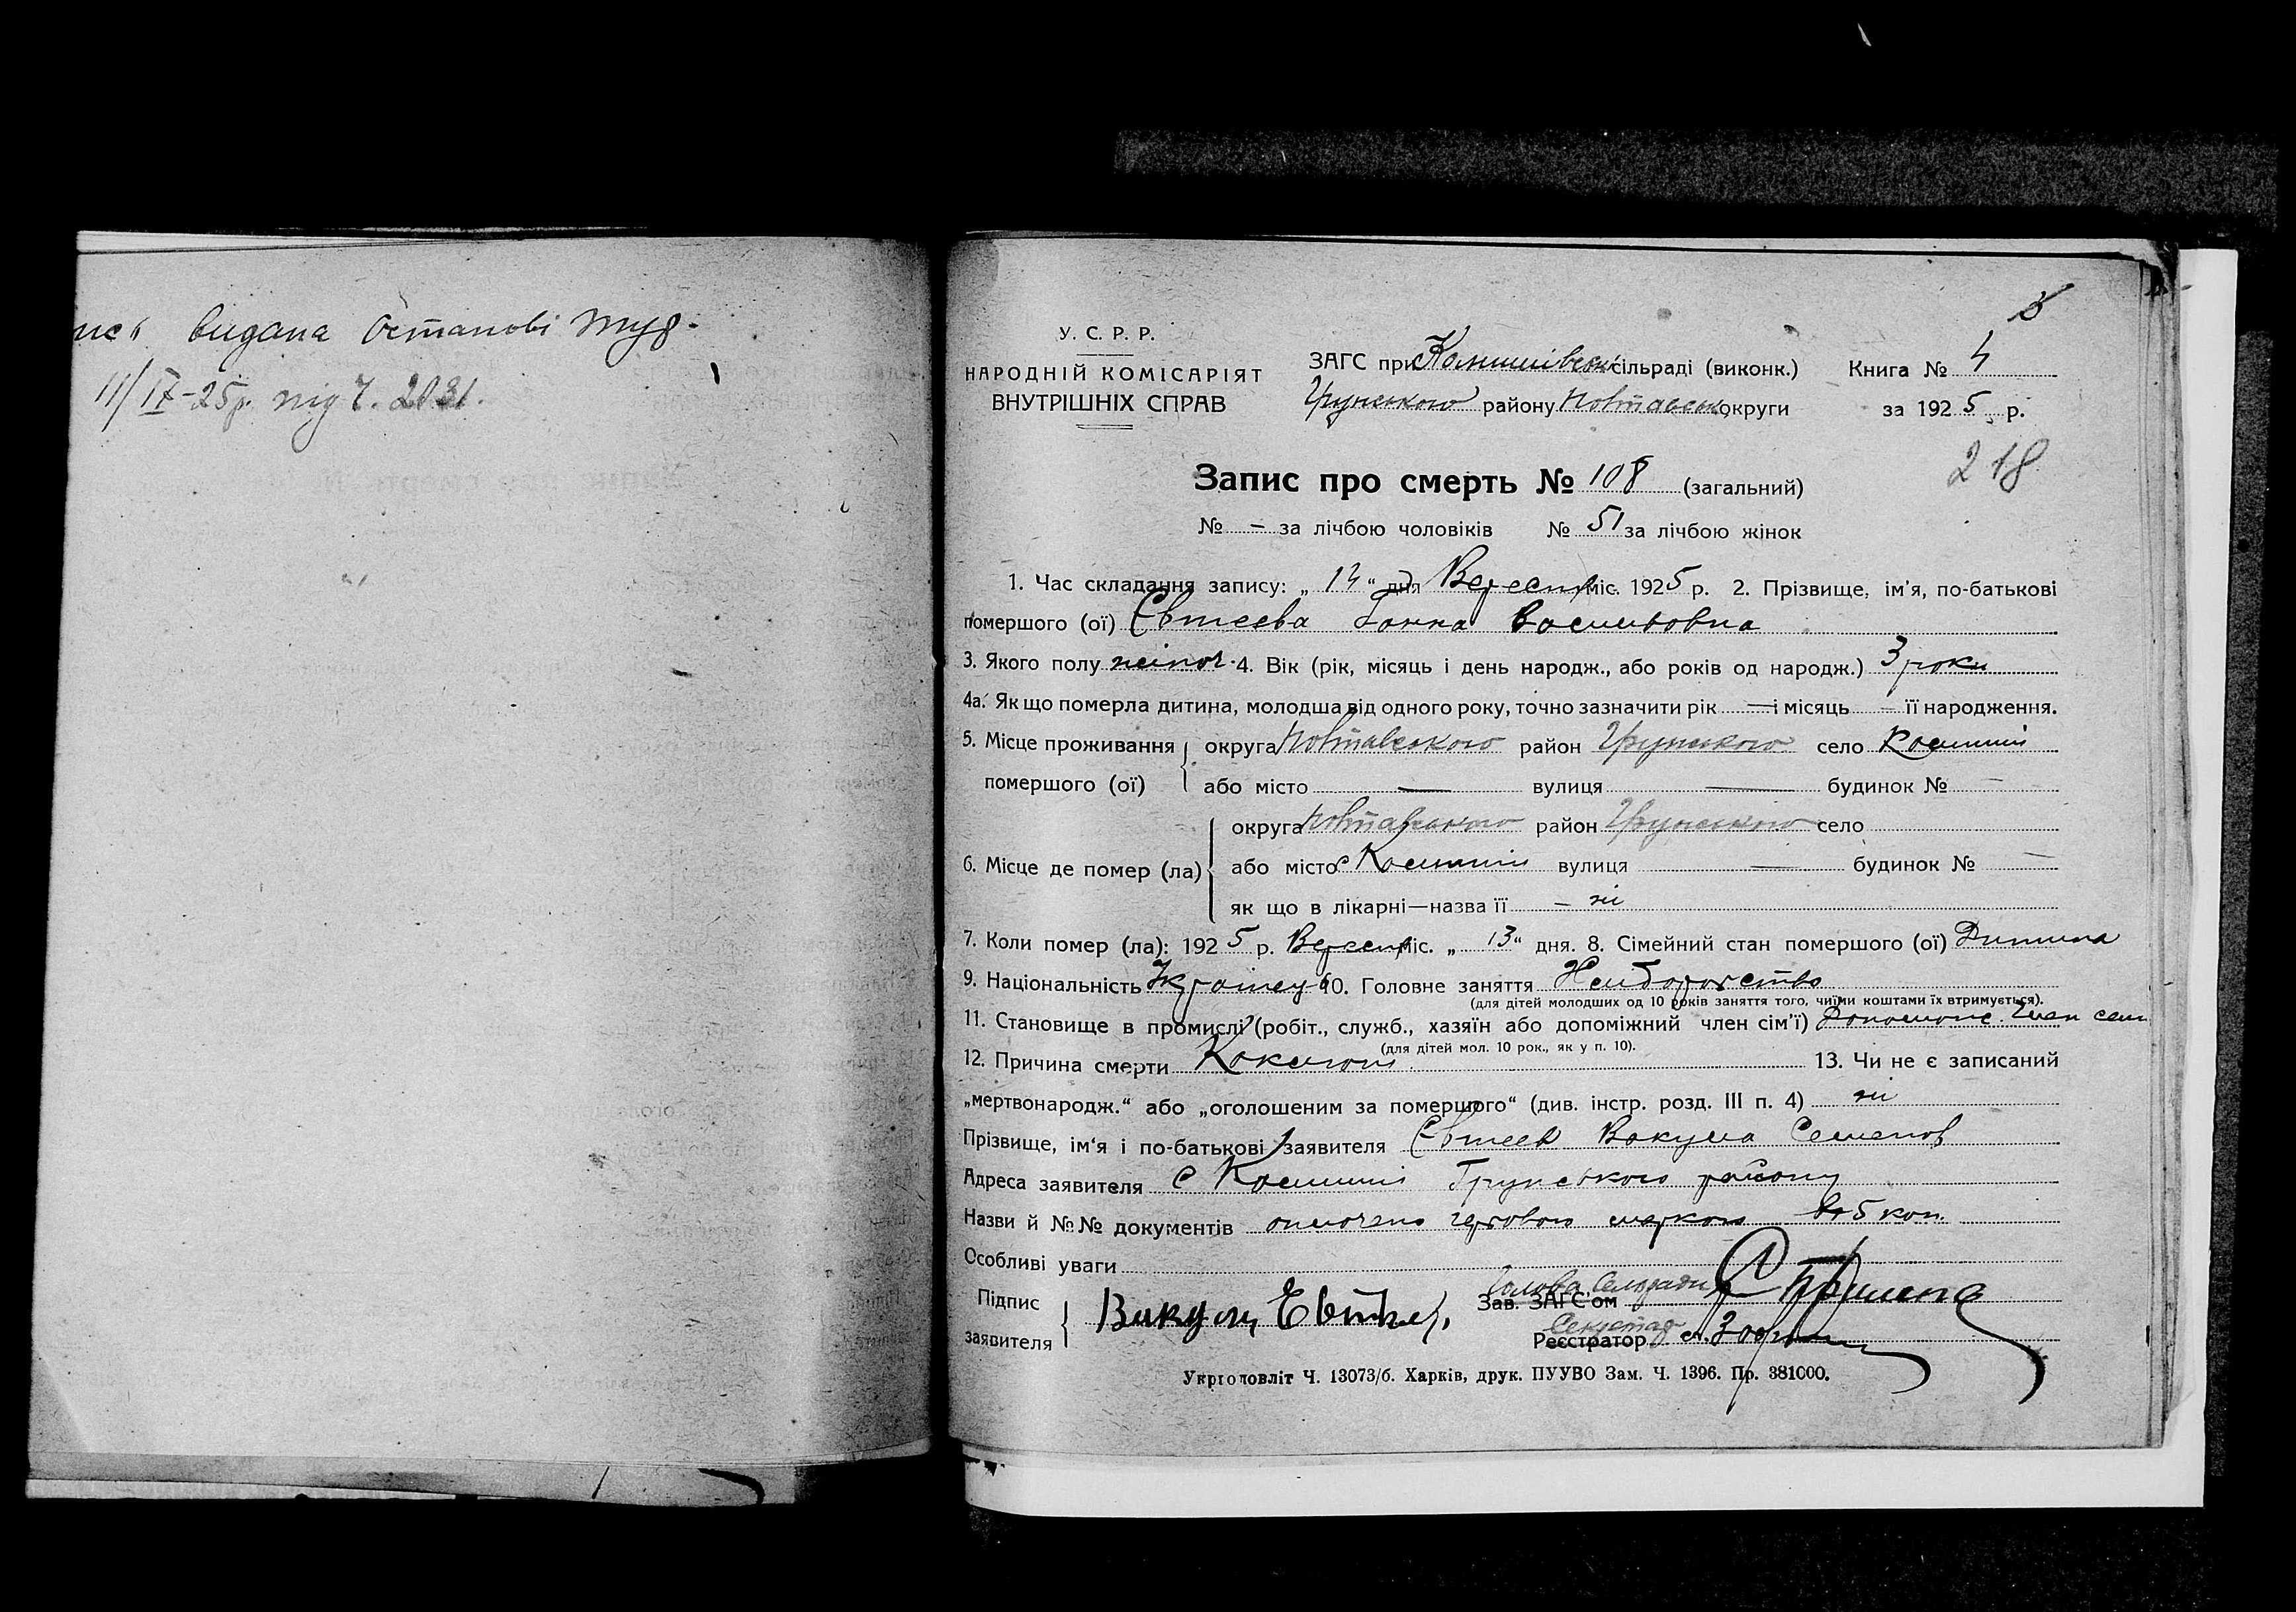 видана Останові
11/IX-25р. під Ч. 2031.
3
У. С. Р. Р.
НАРОДНІЙ КОМІСАРІЯТ
ВНУТРІШНІХ СПРАВ
ЗАГС при сільраді (виконк.)
Грунського району Полтавськ. округи
Книга № 4
за 1925 р.
218
Запис про смерть № 108 (загальний)
№ – за лічбою чоловіків № 51 за лічбою жінок
1. Час складання запису: „ “ дня Вересня міс. 1925 р. 2. Прізвище, ім'я, по-батькові
помершого (ої) Євтеєва Ганна Васильовна
3. Якого полу жіноч. 4. Вік (рік, місяць і день народж., або років од народж.) 3 роки
4а. Як що померла дитина, молодша від одного року, точно зазначити рік — і місяць – її народження.
5. Місце проживання помершого (ої) округа Полтавського район Грунського село
або місто — вулиця — будинок № –
6. Місце де помер (ла) округа Полтавського район Грунського село
або місто с вулиця — будинок № –
як що в лікарні—назва її – ні
7. Коли помер (ла): 1925 р. Вересня міс. „ 13 “ дня. 8. Сімейний стан помершого (ої) Дитина
9. Національність 10. Головне заняття Хліборобство
(для дітей молодших од 10 років заняття того, чиїми коштами їх втримується).
11. Становище в промислі (робіт., служб., хазяїн або допоміжний член сім'ї) Допоможн. член сем
(для дітей мол. 10 рок., як у п. 10).
12. Причина смерти 13. Чи не є записаний
„мертвонародж.“ або „оголошеним за помершого“ (див. інстр. розд. III п. 4) ні
Прізвище, ім'я і по-батькові заявителя Євтеєв Вакула Семенов
Адреса заявителя с Грунського району
Назви й №№ документів оплочено гербовою маркою 5 коп.
Особливі уваги
Підпис заявителя Вакула
Голова Сельради
Зав. ЗАГС'ом
Секретар
Реєстратор
Укрголовліт Ч. 13073/б. Харків, друк. ПУУВО Зам. Ч. 1396. Пр. 381000.